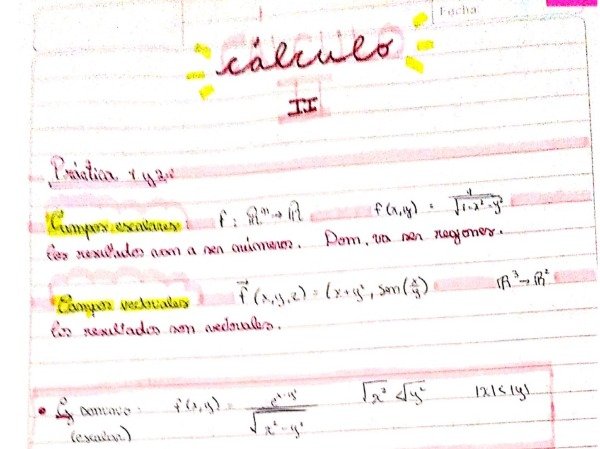 Fecha
cálculo
II
Práctica 1 y 2
Campos escalares: f: ℝⁿ → ℝ f(x,y) = 1/√(1-x²-y²)
los resultados van a ser números. Dom. va ser regiones.
Campos vectoriales f⃗(x,y,z) = (x+y², sen(x/y)) ℝ³→ℝ²
los resultados son vectoriales.
• Ej dominio: f(x,y) = /√(x²-y²) √x² < √y² |x|≤|y|
(escalar)